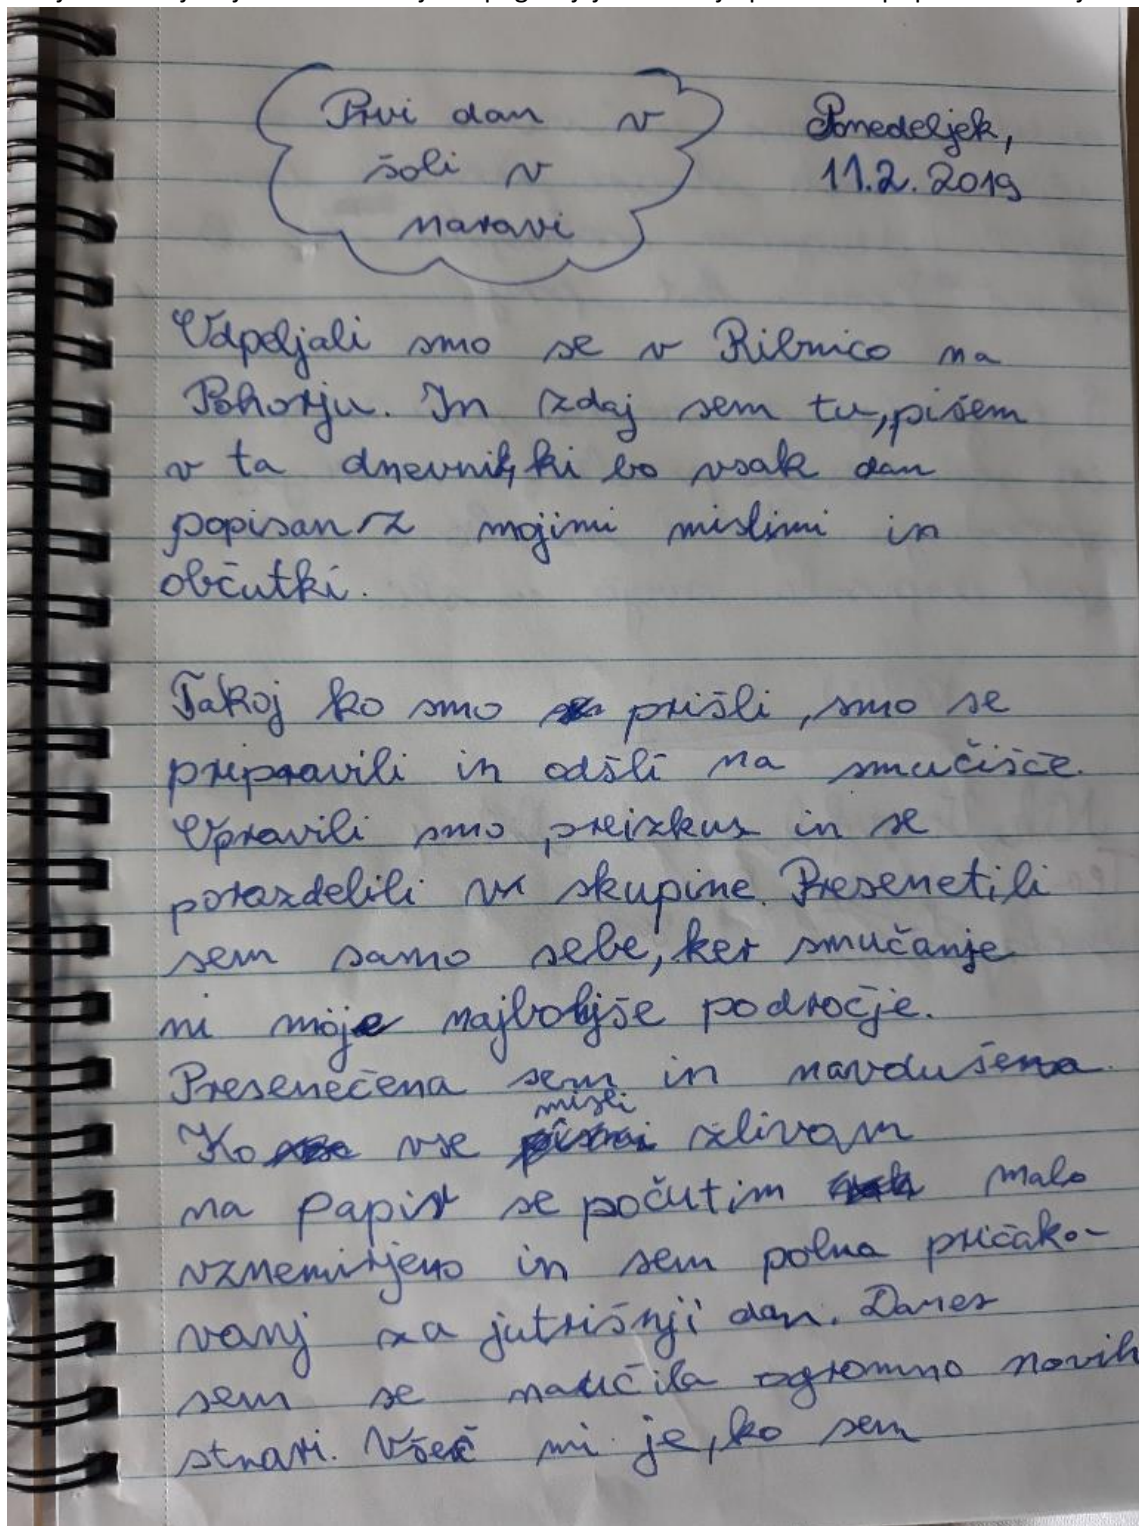 Prvi dan v
šoli v
naravi
Ponedeljek,
11.2.2019
Odpeljali smo se v Ribnico na
Pohorju. In zdaj sem tu, pišem
v ta dnevnik, ki bo vsak dan
popisan z mojimi mislimi in
občutki.
Takoj ko smo prišli, smo se
pripravili in odšli na smučišče.
Opravili smo preizkus in se
porazdelili v skupine. Presenetili
sem samo sebe, ker smučanje
ni moje najboljše področje.
Presenečena sem in navdušena.
misli
Ko vse zlivam
na papir se počutim malo
vznemirjeno in sem polna pričako-
vanj za jutrišnji dan. Danes
sem se naučila ogromno novih
stvari. Všeč mi je, ko sem